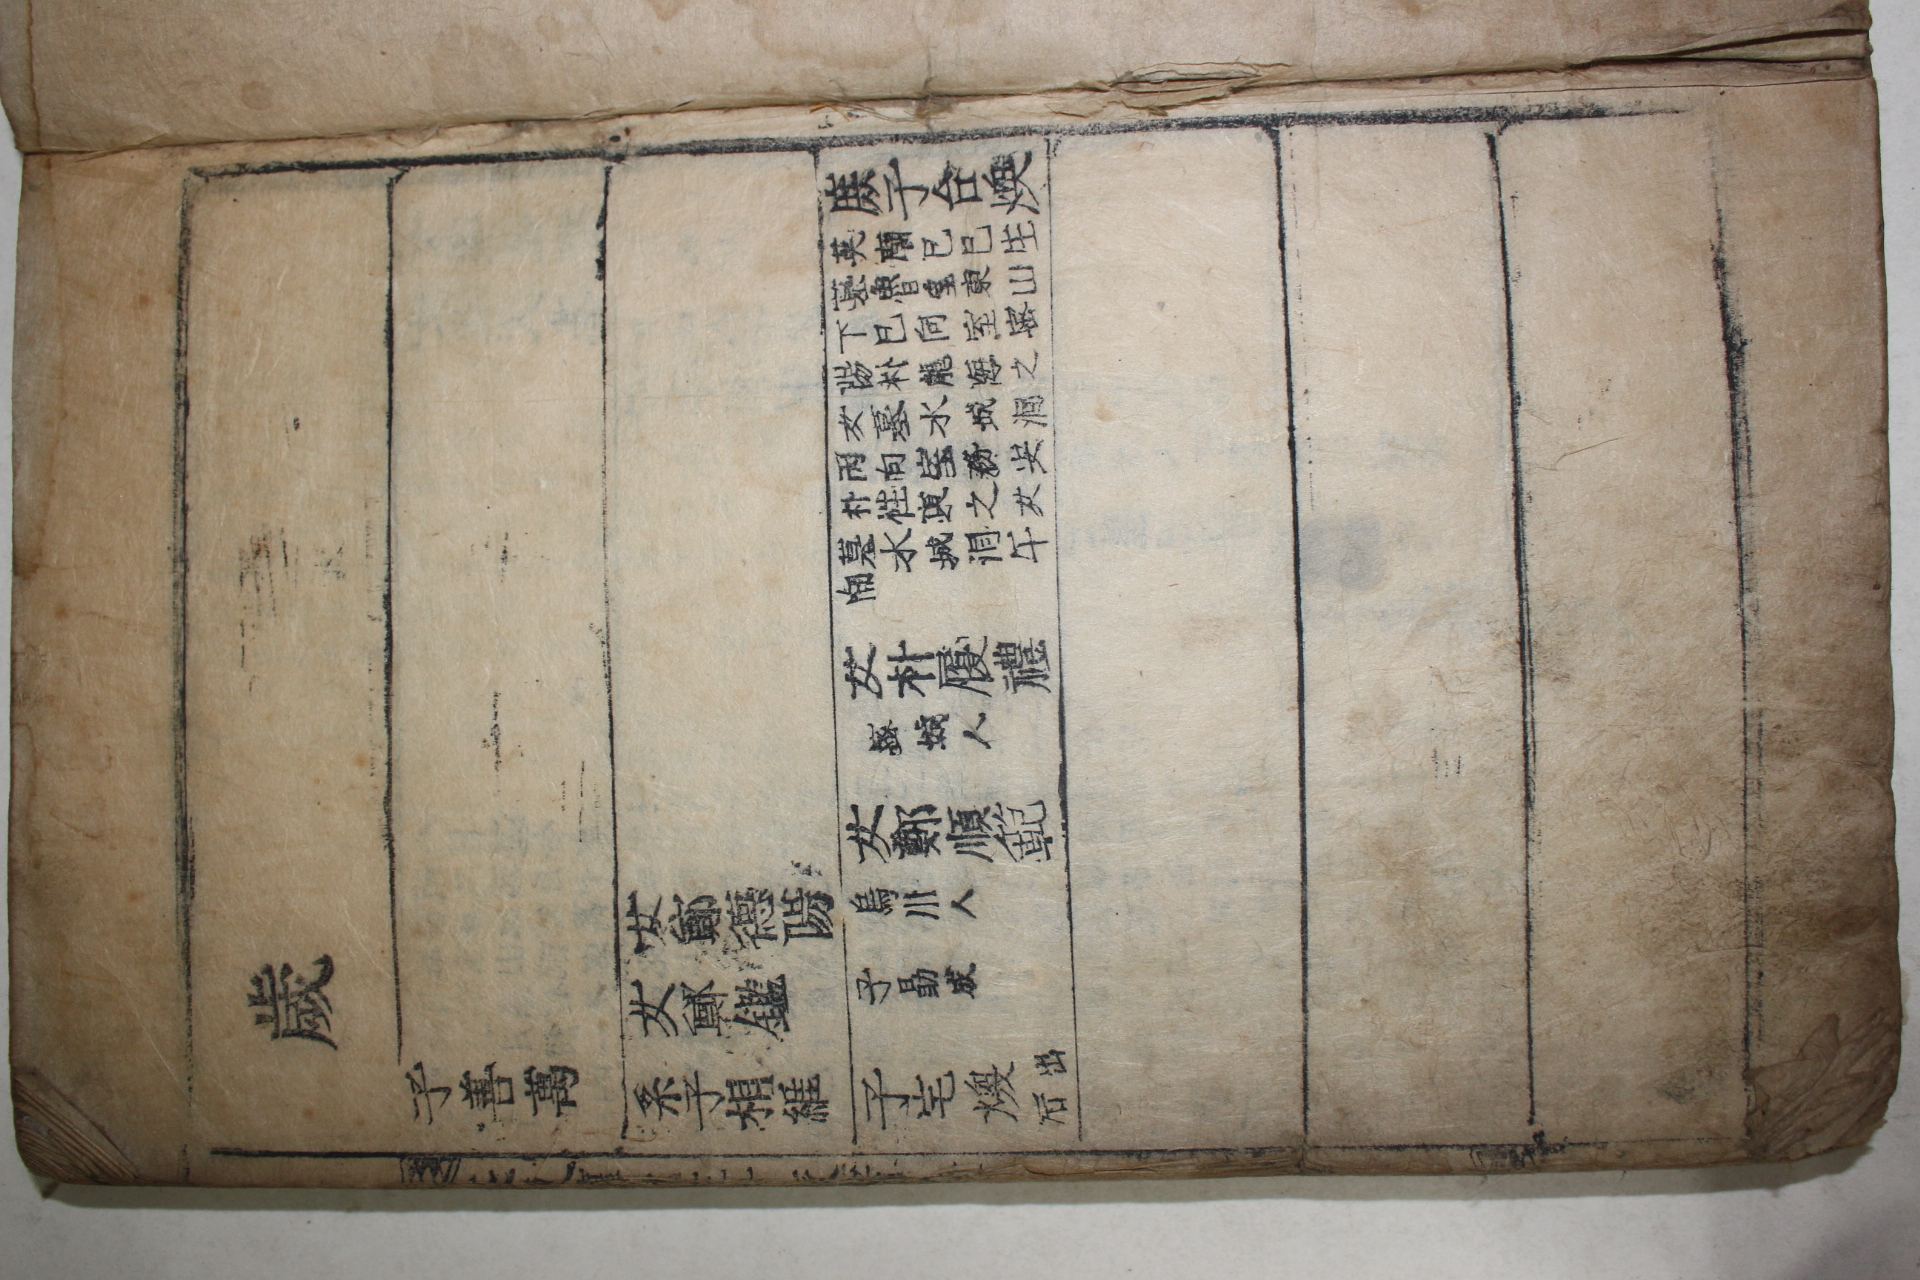 歲
子善萬
女鄭德陽
女鄭鑑
系子相維
庶子台煥
英廟己巳生
墓魯室東山
下巳向室密
陽朴龍海之
女墓水城洞
丙向室務安
朴性東之女
墓水城洞午
向
女朴履禮
密城人
女鄭順範
烏川人
子勗成
子宅煥
出后